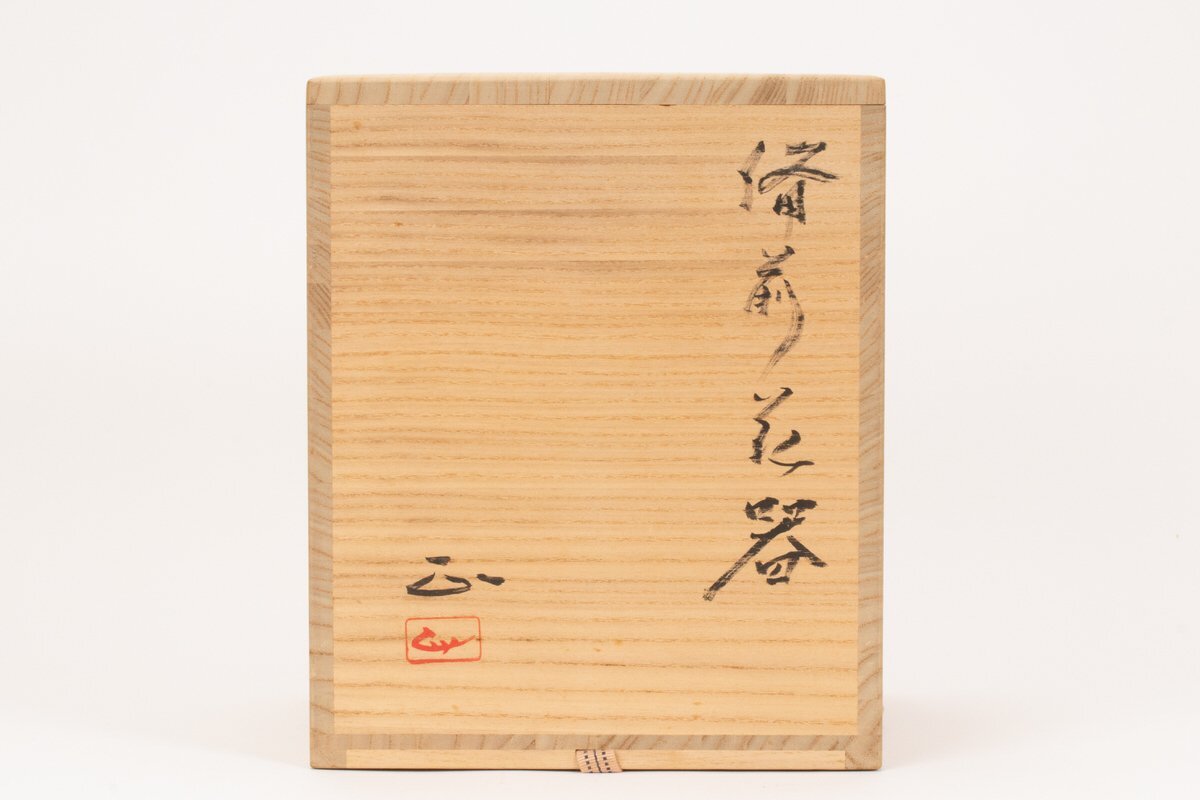 備前花器
正